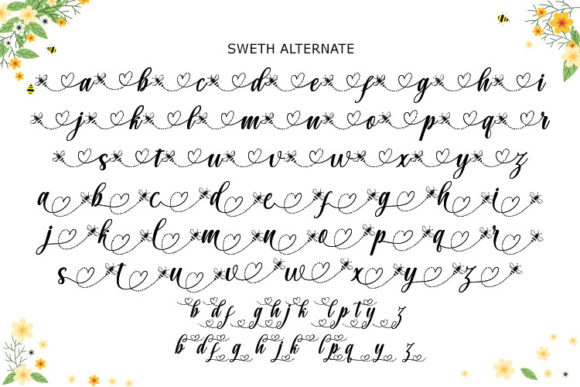 SWETH ALTERNATE
a b c d e f g h i
j k l m n o p q r
s t u v w x y z
a b c d e f g h i
j k l m n o p q r
s t u v w x y z
b d f g h j k l p t y z
b d f g h j k l p q y z